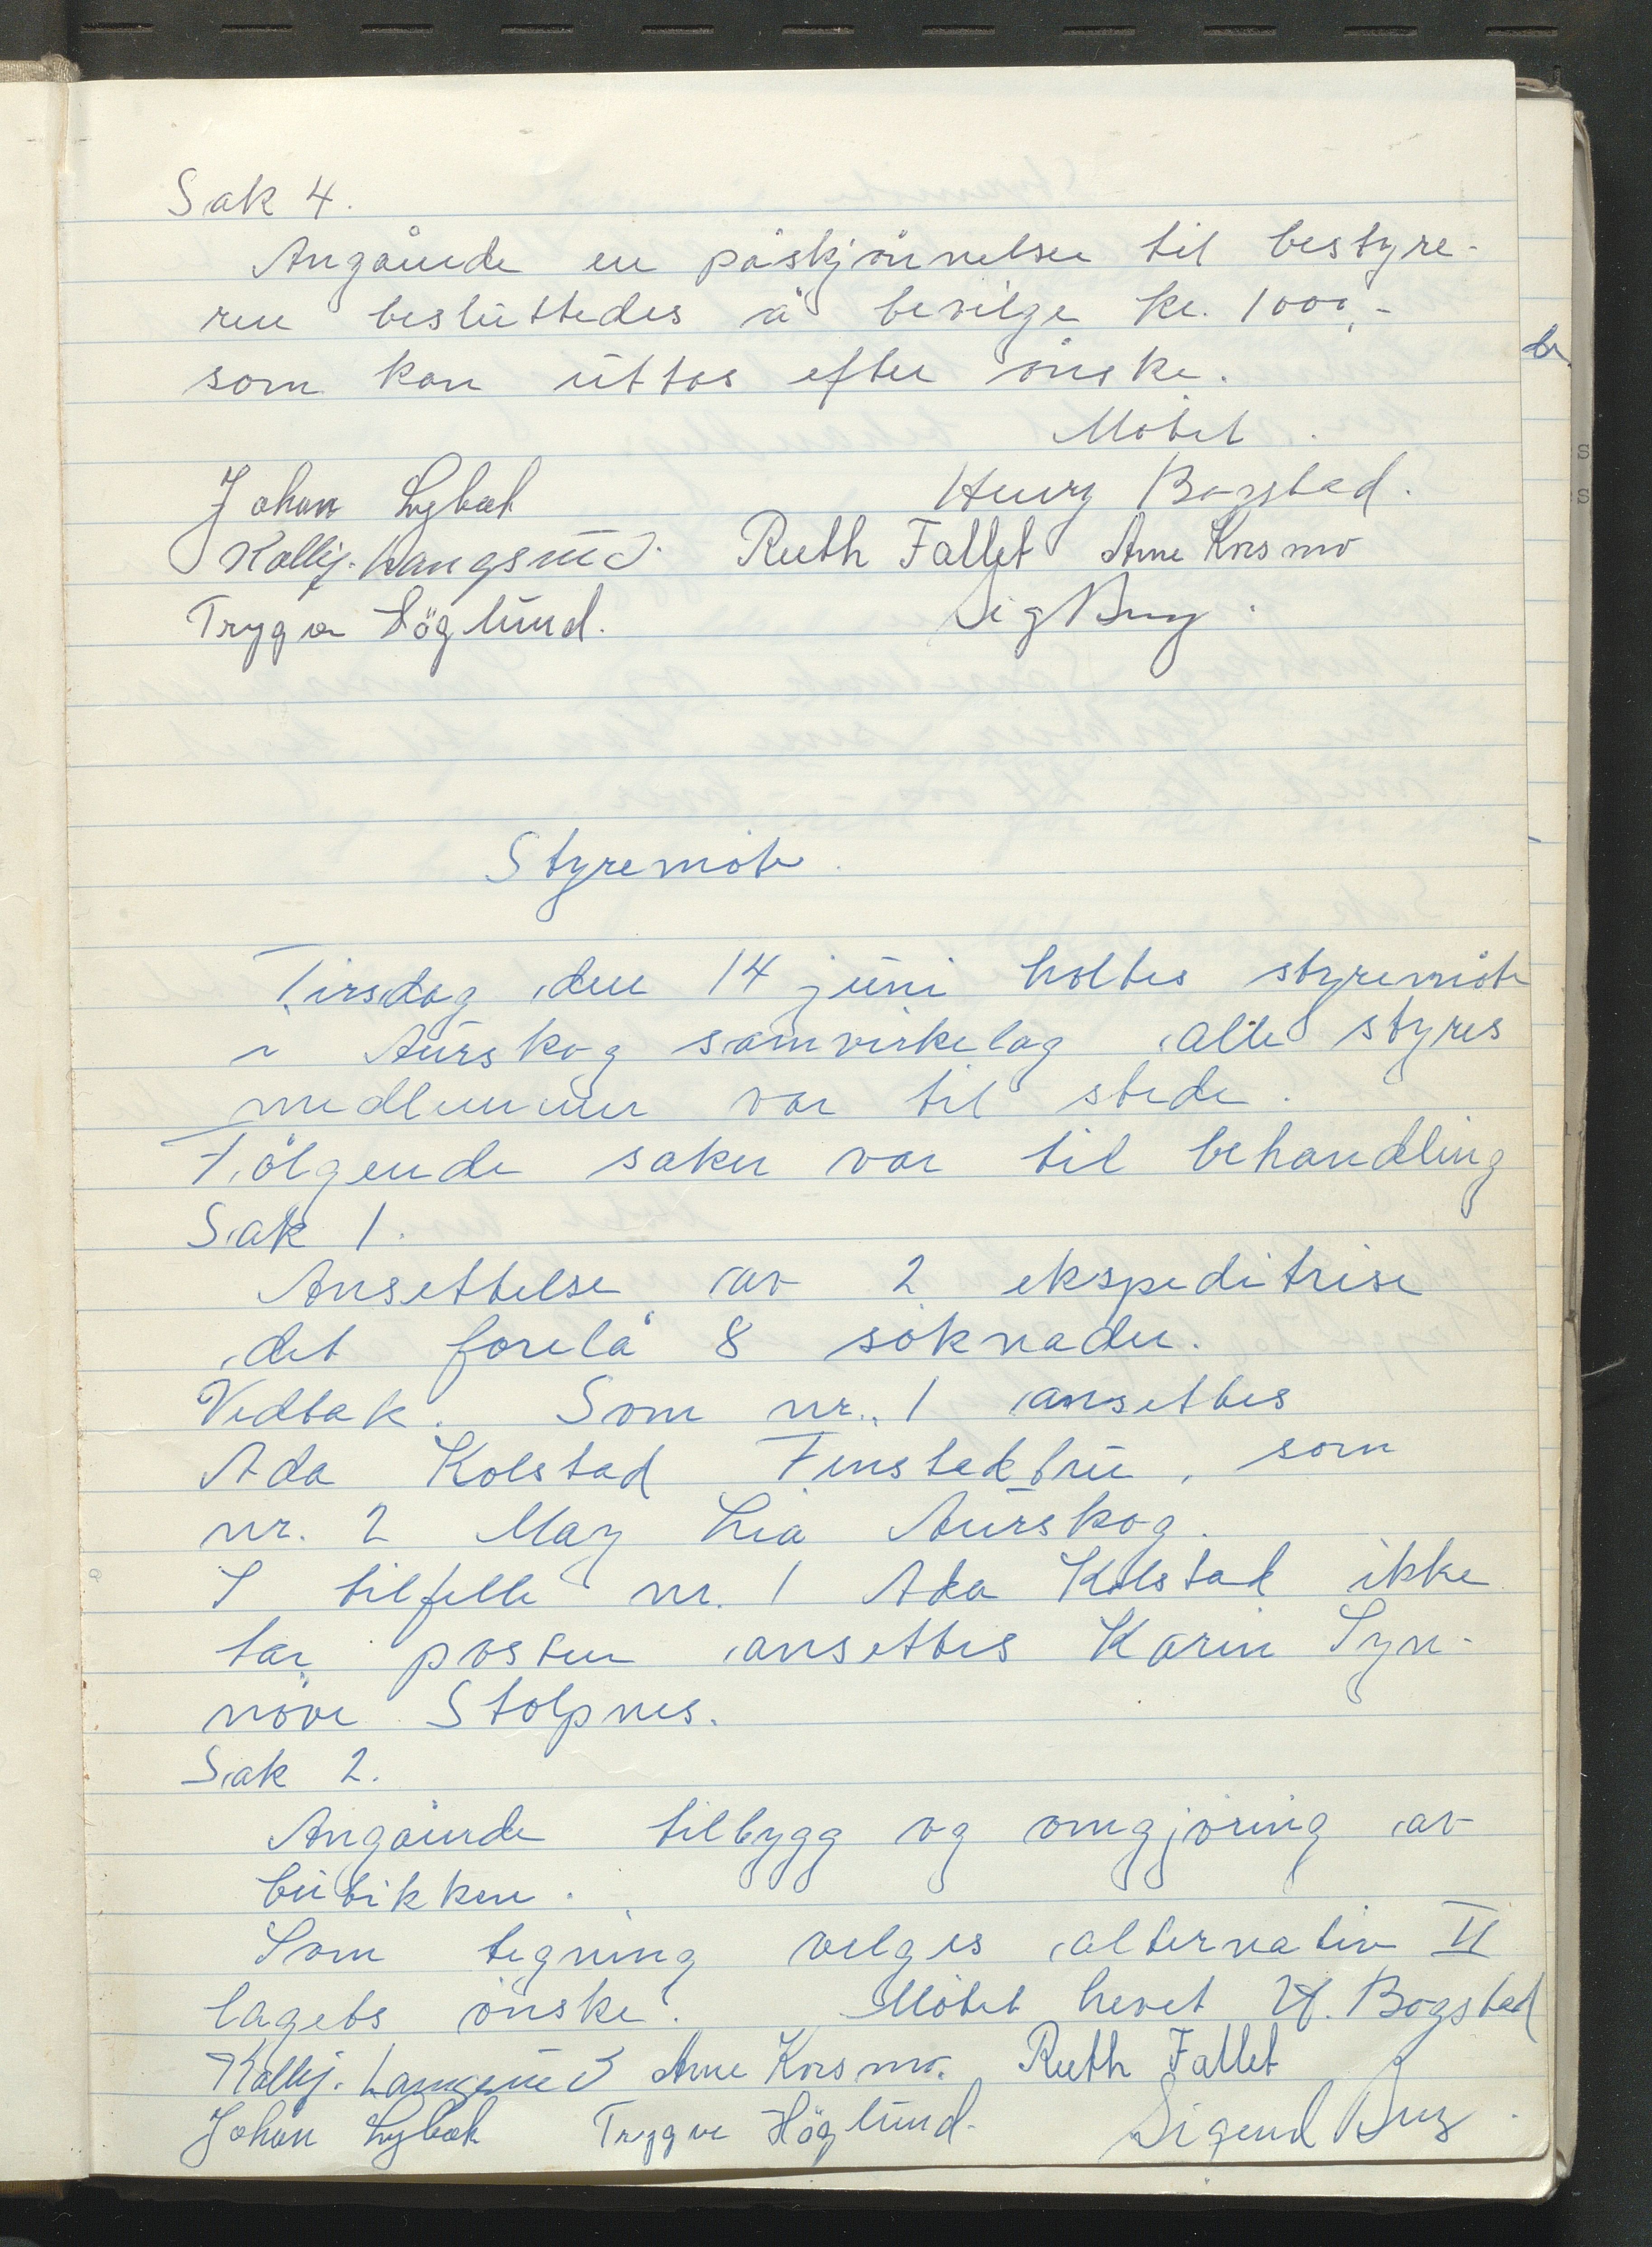 Sak 4.
Angående en påskjönnelse til bestyre-
ren besluttedes å bevilge kr. 1000,-
som kan uttas efter önske.
Mötet.
Johan Lybæk Henry Bogstad.
Kolbj. Langsrud. Ruth Fallet Arne Korsmo
Trygve Höglund. Sig Bery.
Styremöte.
Tirsdag den 14 juni holtes styremöte
i Aurskog samvirkelag alle styres
medlemmer var til stede.
Fölgende saker var til behandling
Sak 1.
Ansettelse av 2 ekspeditrise
det forelå 8 söknader.
Vedtak. Som nr. 1 ansettes
Ada Kolstad Finstadbru, som
nr. 2 May Lia Aurskog.
I tilfelle nr. 1 Ada Kolstad ikke
tar posten ansettes Karin Syn-
növe Stolpnes.
Sak 2.
Angående tilbygg og omgjöring av
butikken.
Som tegning velges alternativ II
lagets önske. Mötet hevet H. Bogstad
Kolbj. Langsrud Arne Korsmo. Ruth Fallet
Johan Lybæk Trygve Höglund.